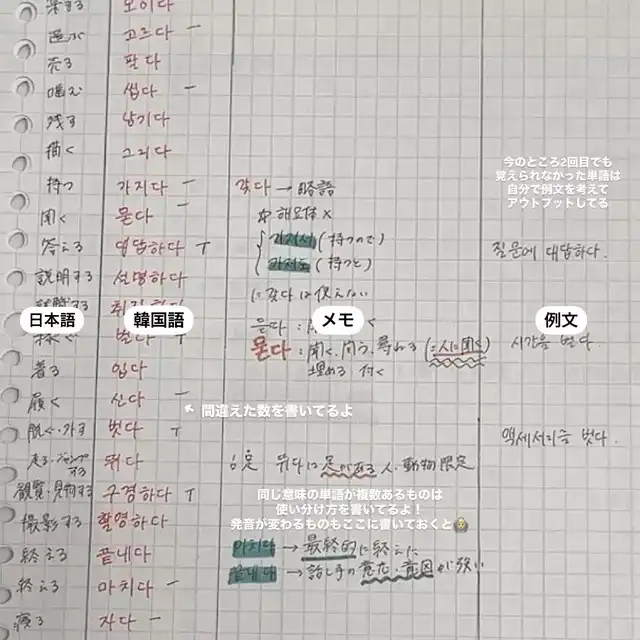 모이다
選ぶ 고르다 -
売る 판다
噛む 씹다 -
残す 남기다
描く 그리다
今のところ2回目でも
覚えられなかった単語は
自分で例文を考えて
アウトプットしてる
持つ 가지다 - 갖다 → 略語
聞く 묻다 - ☆ 해요体 ×
答える 대답하다 T 가져서 (持つので) 질문에 대답하다.
説明する 설명하다 가져도 (持つと)
に갖다は使えない
日本語 韓国語 メモ 例文
묻다 : 聞く、問う、尋ねる (:人に聞く) 시간을 벌다.
着る 입다 埋める、付く
履く 신다 -
← 間違えた数を書いてるよ
脱ぐ・外す 벗다 T 액세서리를 벗다.
走る・ジャンプする 뛰다 뛰다は足がある人、動物限定
観覧・見物する 구경하다 T
同じ意味の単語が複数あるものは
使い分け方を書いてるよ!
発音が変わるものもここに書いておくと🙆
撮影する 촬영하다
終える 끝내다 마치다 → 最終的に終えた
終える 마치다 - 끝내다 → 話し手の意志・意図が強い
寝る 자다 -